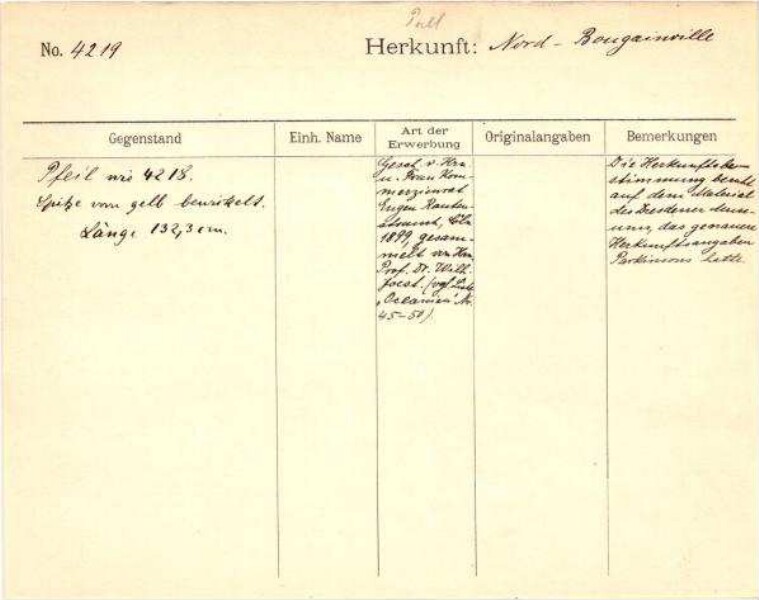 No. 4219
Herkunft: Nord - Bougainville
Gegenstand
Einh. Name
Art der
Erwerbung
Originalangaben
Bemerkungen
Pfeil wie 4218.
Spitze vorn gelb bewickelt.
Länge 132,3 cm.
Gesch. v. Hrn
u. Frau Kom-
merzienrat
Eugen Rauten-
strauch, Cöln
1899, gesam-
melt von Hrn
Prof. Dr. Wilh.
Joest. (vgl. Liste
"Oceanien" Nr.
45-50).
Die Herkunftsbe-
stimmung beruht
auf dem Material
des Dresdener Muse-
ums, das genauere
Herkunftsangaben
Parkinsons hatte